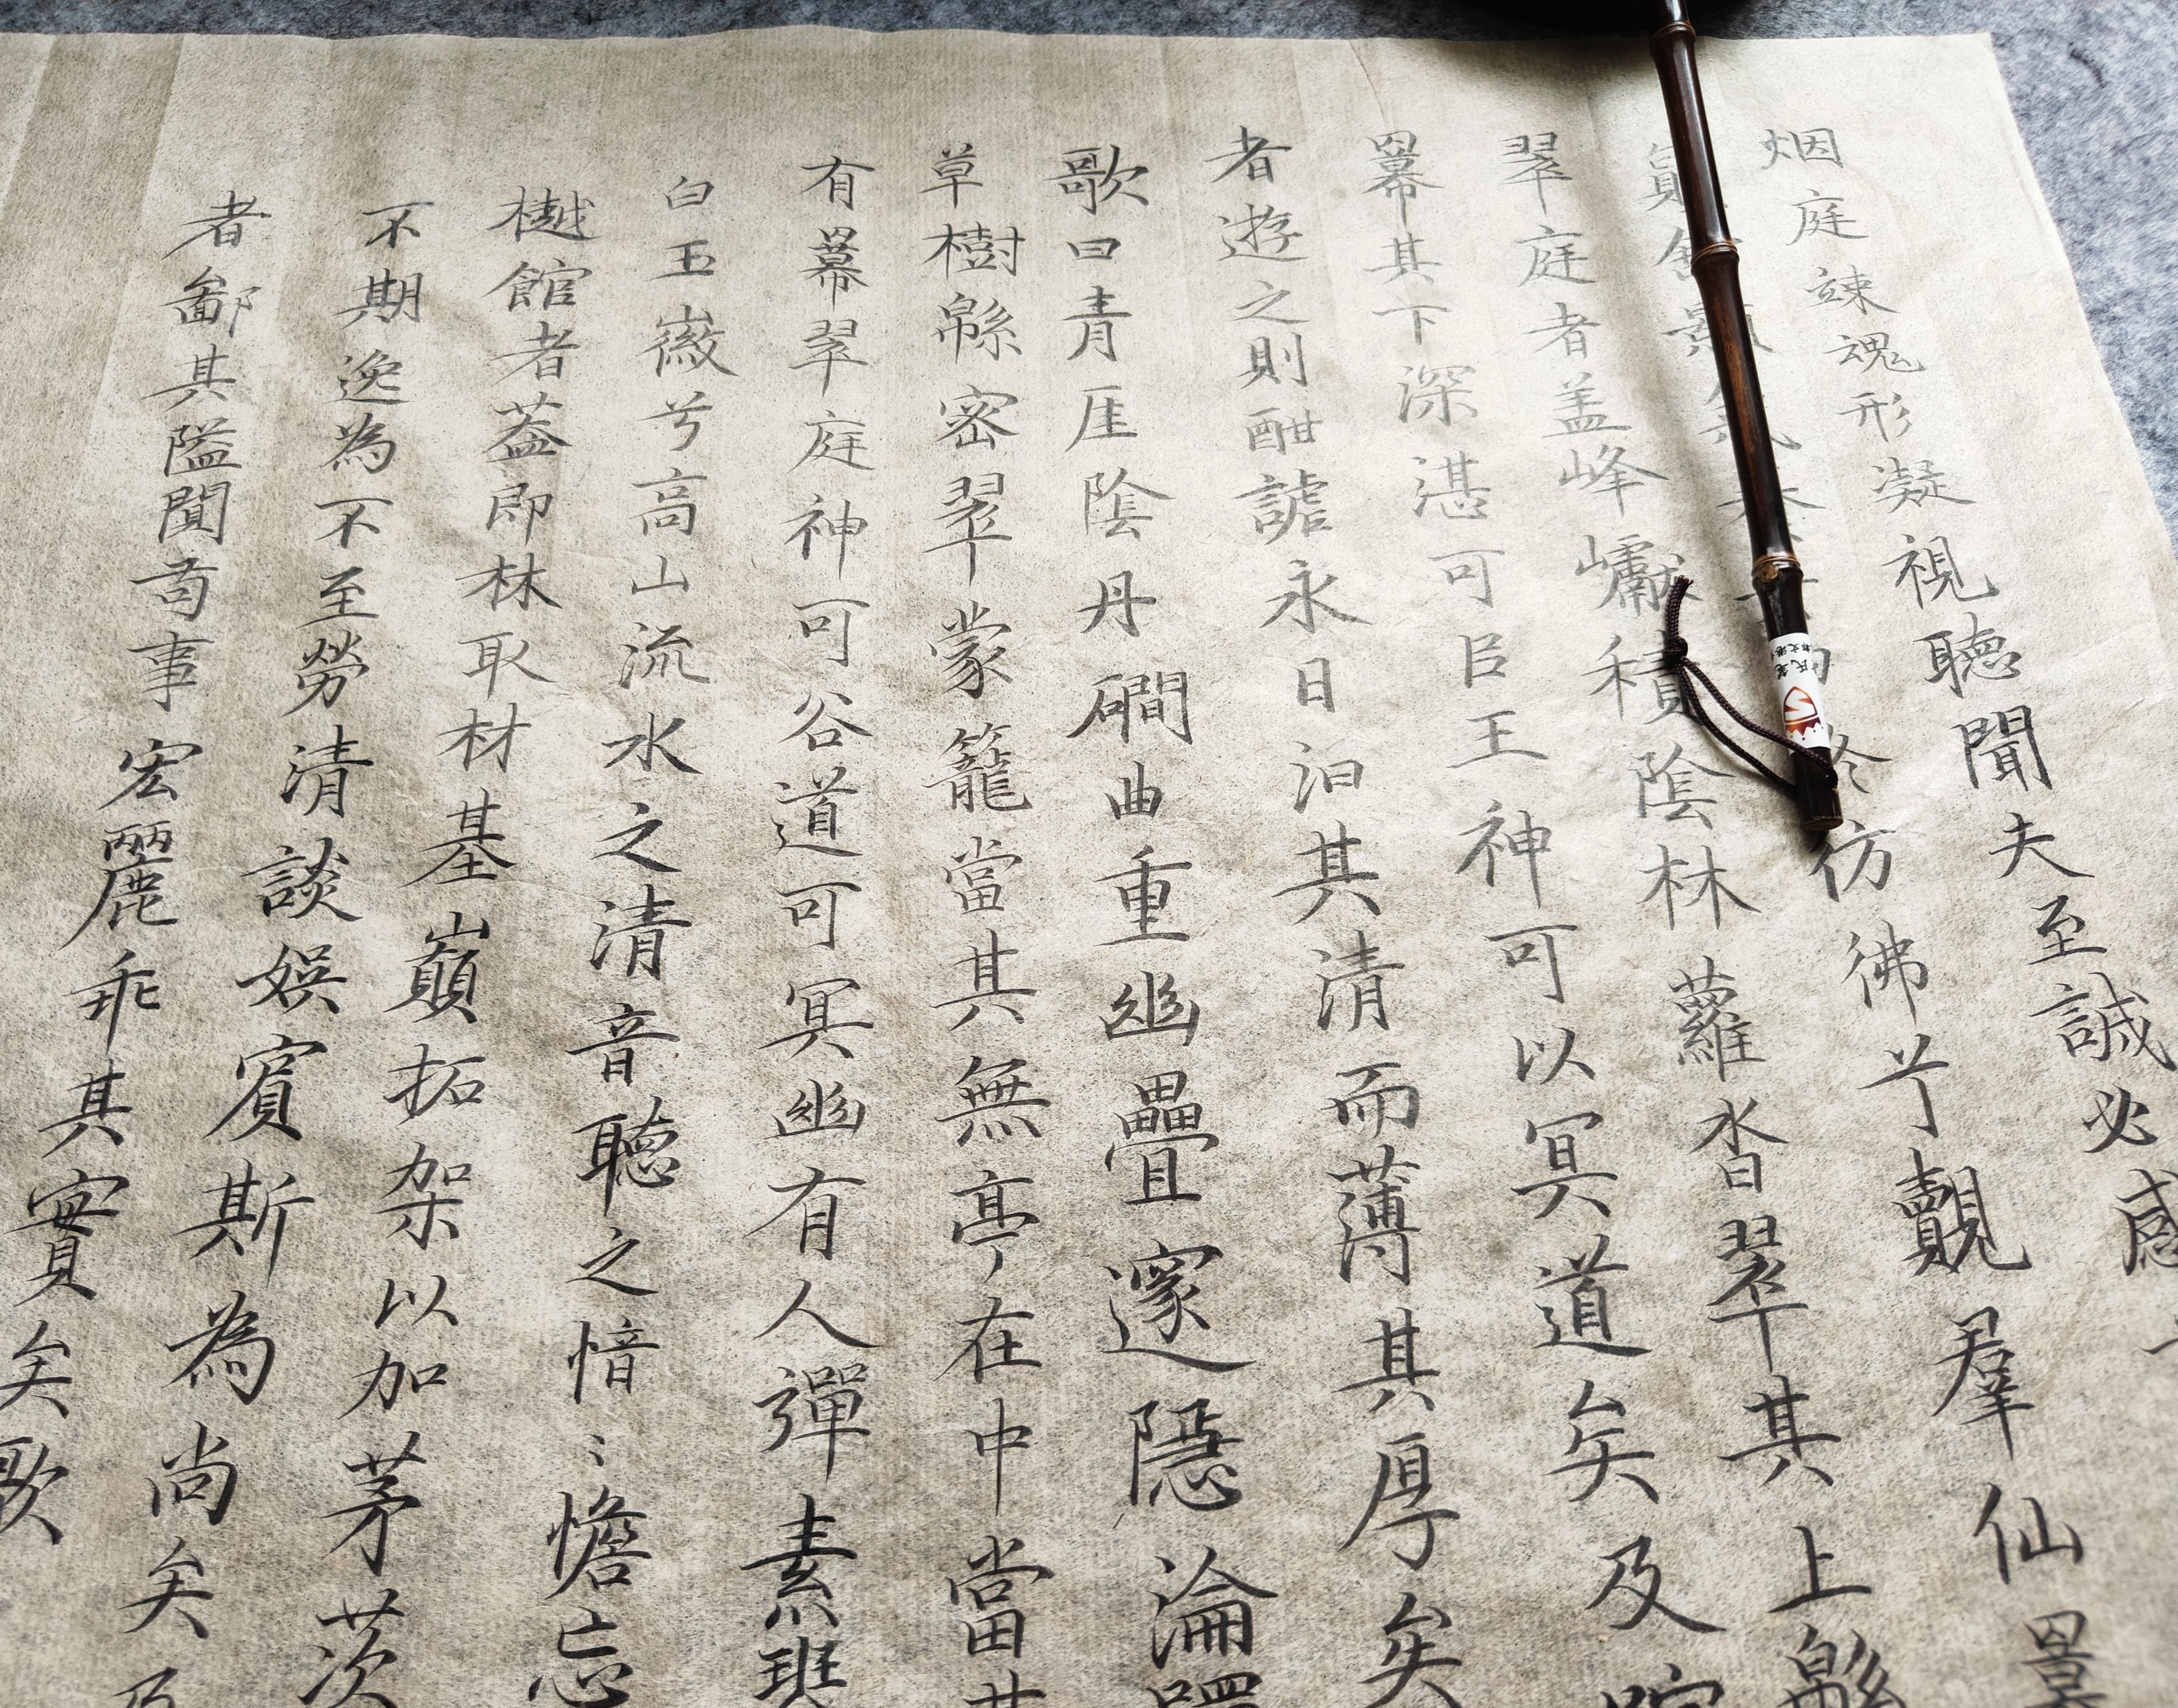 烟庭竦魂形凝視聽聞夫至誠必感
彷彿兮覿羣仙冪
翠庭者盖峰巘積陰林蘿沓翠其上緜
冪其下深湛可臣王神可以冥道矣及喧
者遊之則酣謔永日汩其清而薄其厚矣
歌曰青崖陰丹磵曲重幽疊邃隱淪躅
草樹緜密翠蒙籠當其無亭在中當其
有冪翠庭神可谷道可冥幽有人彈素
白玉徽兮高山流水之清音聽之愔〻憺忘
樾館者葢即林取材基巔拓架以加茅茨
不期逸為不至勞清談娛賓斯為尚矣及
者鄙其隘闃苟事宏麗乖其實矣歌